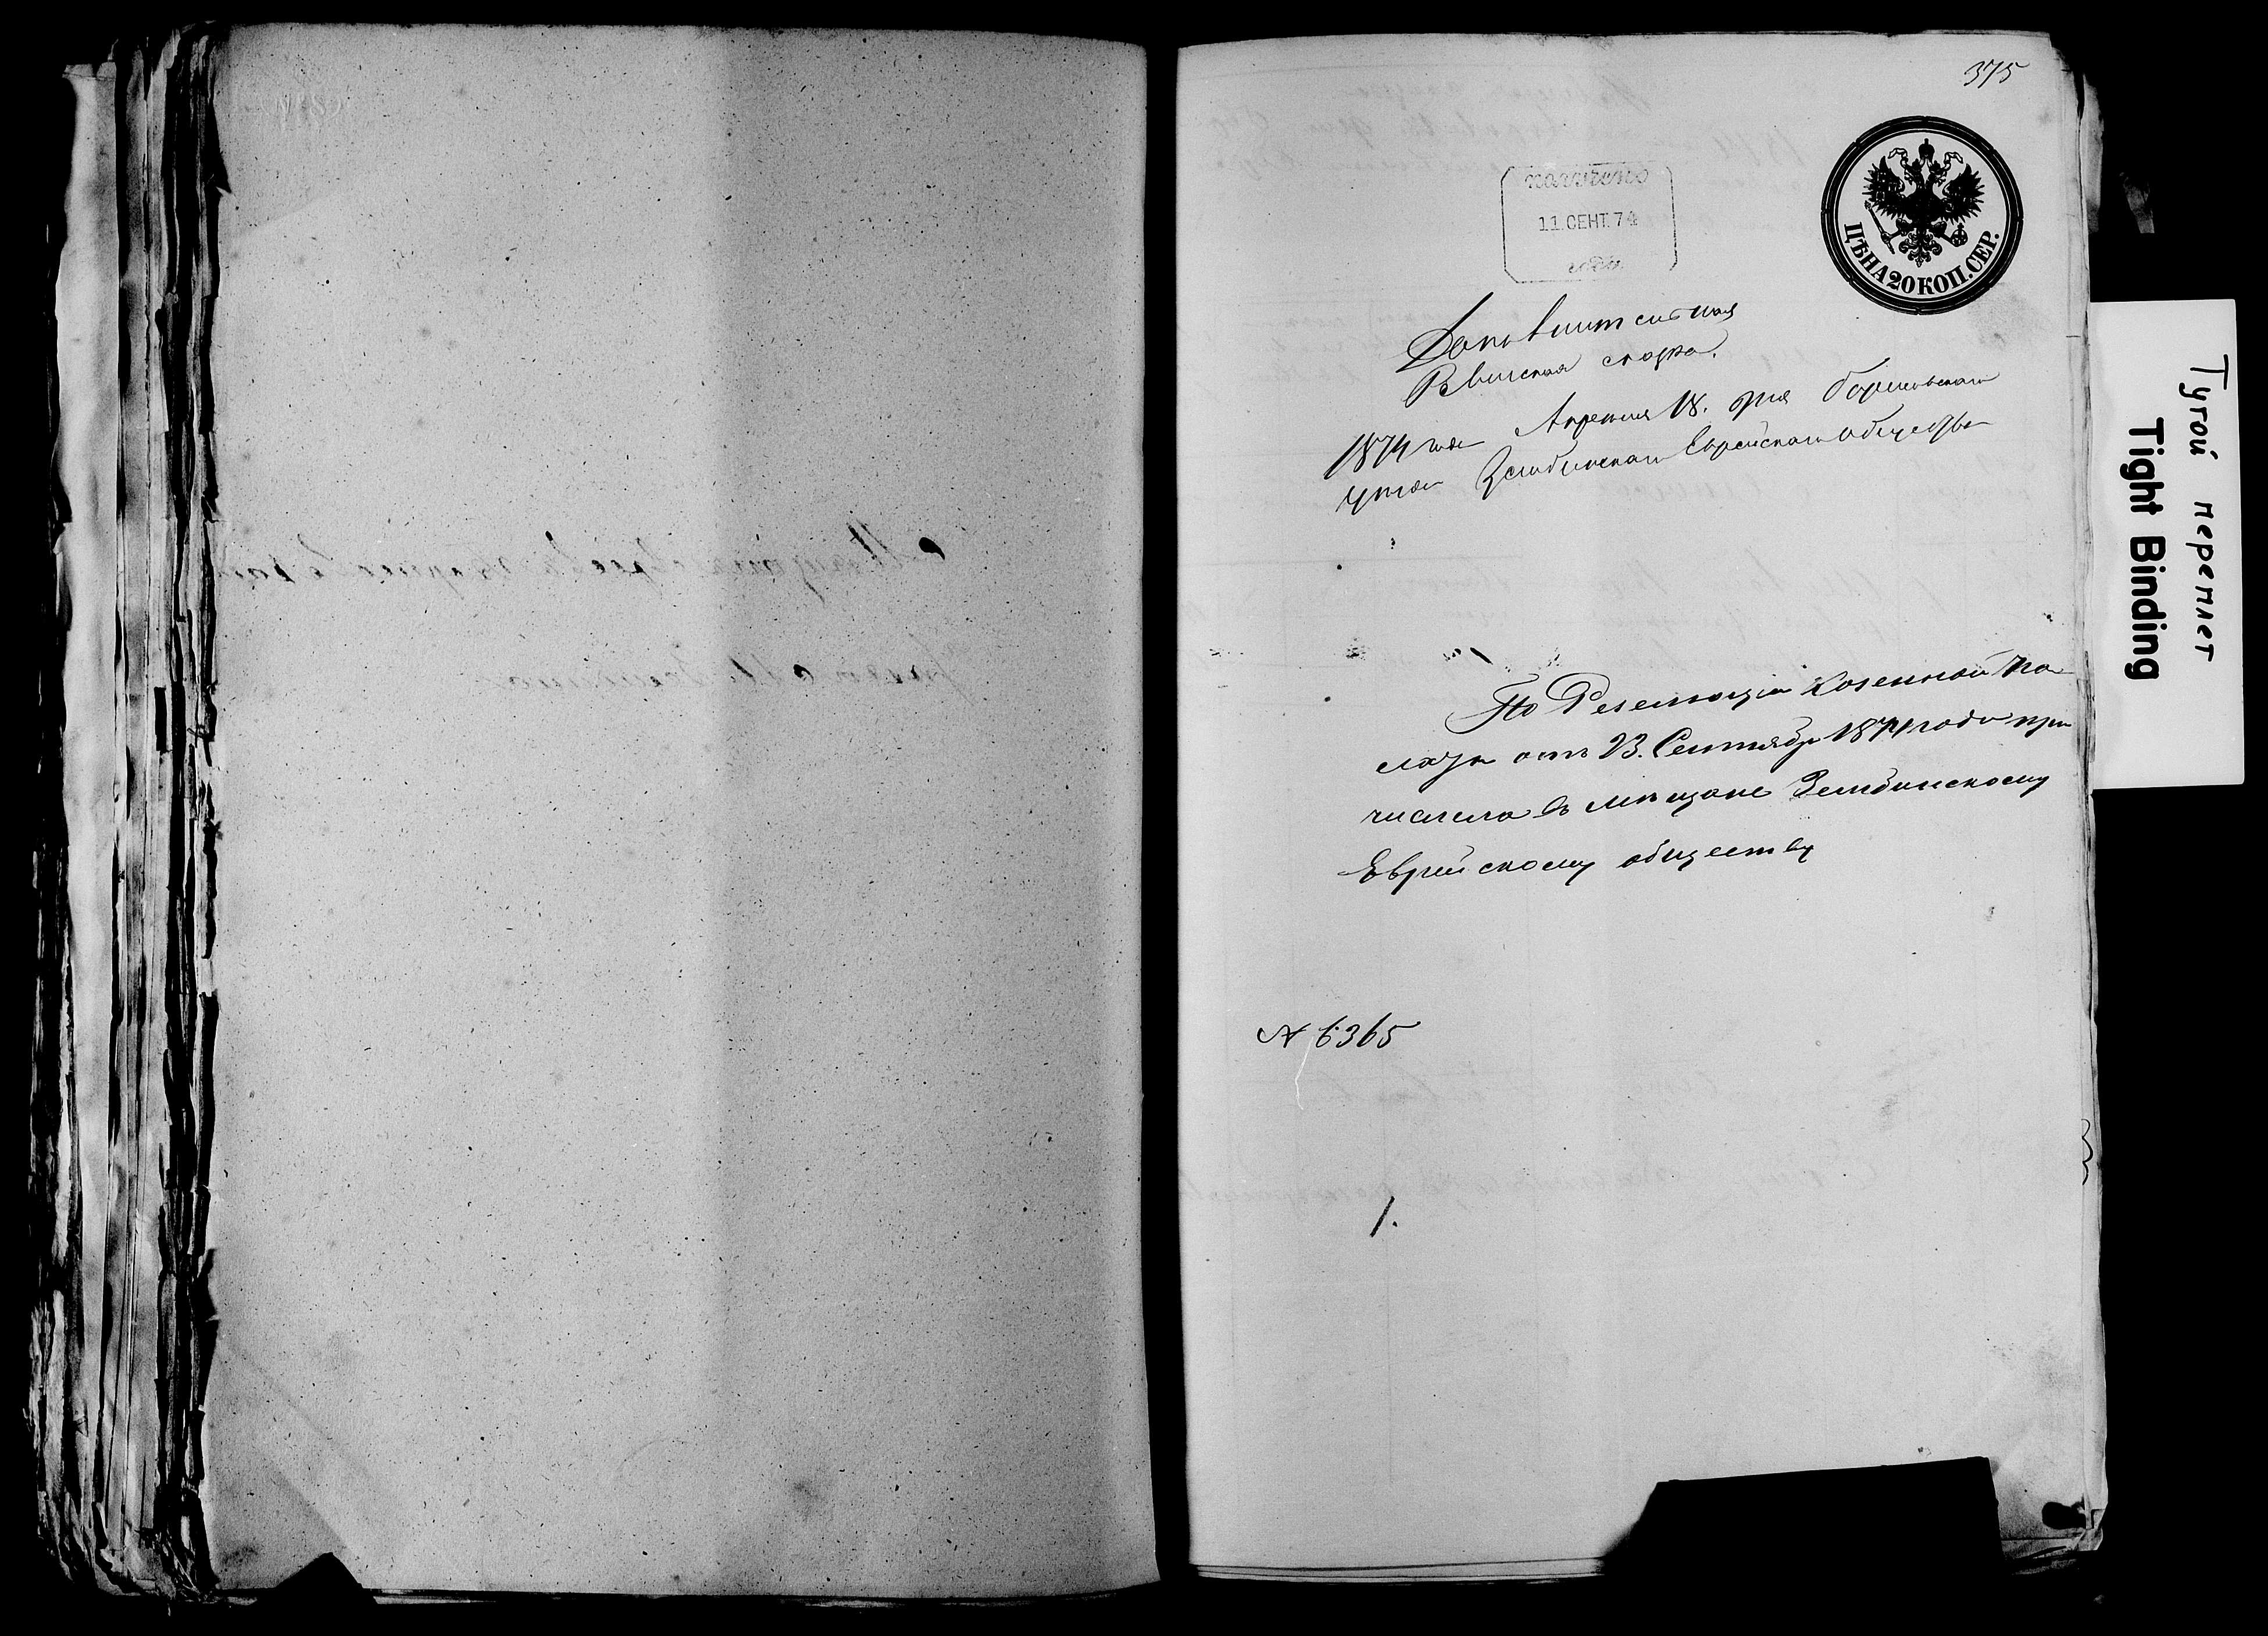 375
получено
11.СЕНТ.74
ЦѢНА 20 КОП. СЕР.
Дополнительная
Ревизская сказка.
1874 года Апреля 18. дня Борисовскаго
уезда Зембинскаго Еврейскаго общества
По Резолюціи Казенной Па
латы отъ 23. Сентября 1874 года при
числена въ мещане Зембинскому
Еврейскому обществу
N 6365
1.
Тугой переплет
Tight Binding